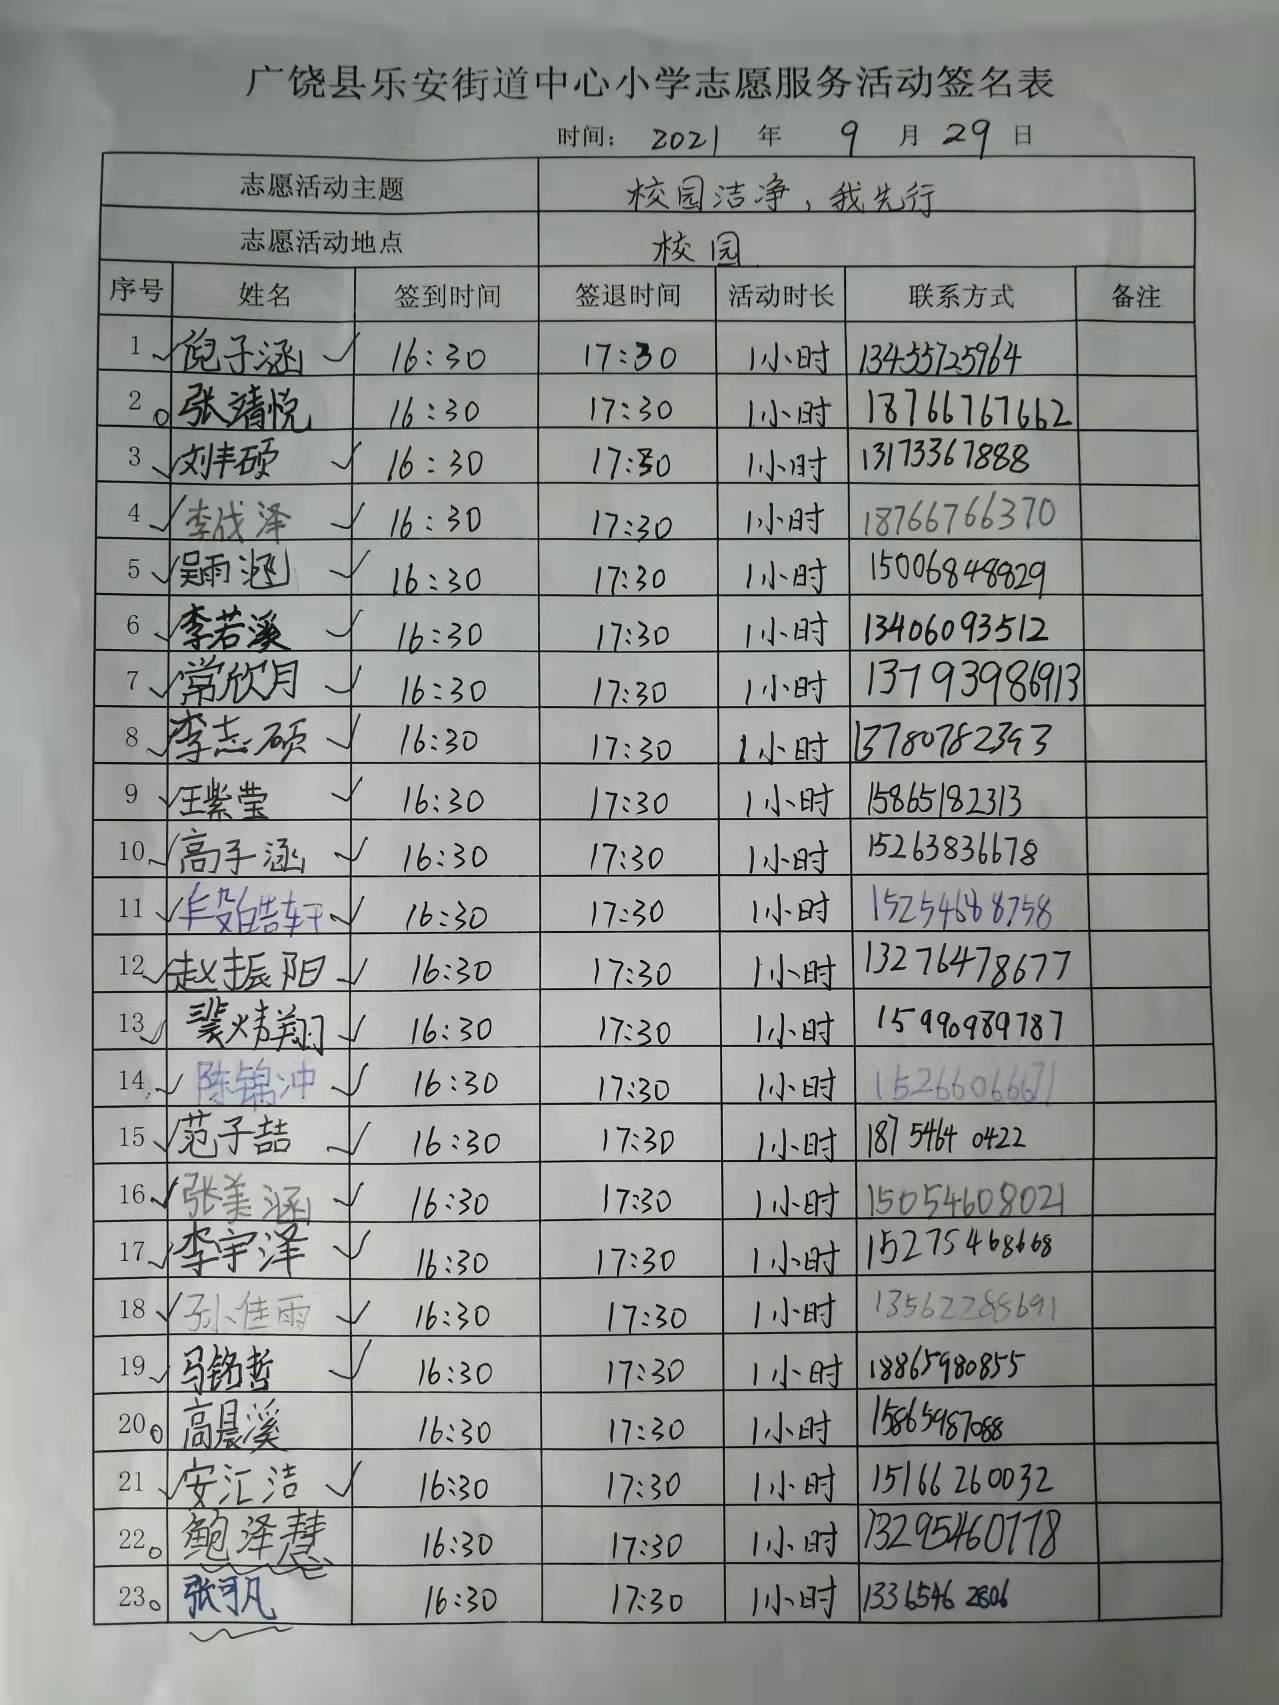 广饶县乐安街道中心小学志愿服务活动签名表
时间： 2021 年 9 月 29 日
志愿活动主题 校园洁净，我先行
志愿活动地点 校园
序号 姓名 签到时间 签退时间 活动时长 联系方式 备注
1 倪子涵 16:30 17:30 1小时 13455725964
2 张清悦 16:30 17:30 1小时 18766767662
3 刘丰硕 16:30 17:30 1小时 13173367888
4 李伐泽 16:30 17:30 1小时 18766766370
5 吴雨涵 16:30 17:30 1小时 15006848829
6 李若溪 16:30 17:30 1小时 13406093512
7 常欣月 16:30 17:30 1小时 13793986913
8 李志硕 16:30 17:30 1小时 13780782393
9 王紫莹 16:30 17:30 1小时 15865182313
10 高子涵 16:30 17:30 1小时 15263836678
11 段皓轩 16:30 17:30 1小时 15254688758
12 赵振阳 16:30 17:30 1小时 13276478677
13 翔 16:30 17:30 1小时 15990989787
14 陈锦冲 16:30 17:30 1小时 15266066671
15 范子喆 16:30 17:30 1小时 187 5464 0422
16 张美涵 16:30 17:30 1小时 15054608021
17 李宇泽 16:30 17:30 1小时 15275468668
18 孙佳雨 16:30 17:30 1小时 13562288691
19 马铭哲 16:30 17:30 1小时 18865980855
20 高晨溪 16:30 17:30 1小时 15865987088
21 安汇洁 16:30 17:30 1小时 15166260032
22 鲍泽慧 16:30 17:30 1小时 13295460778
23 张可凡 16:30 17:30 1小时 1336546 2806